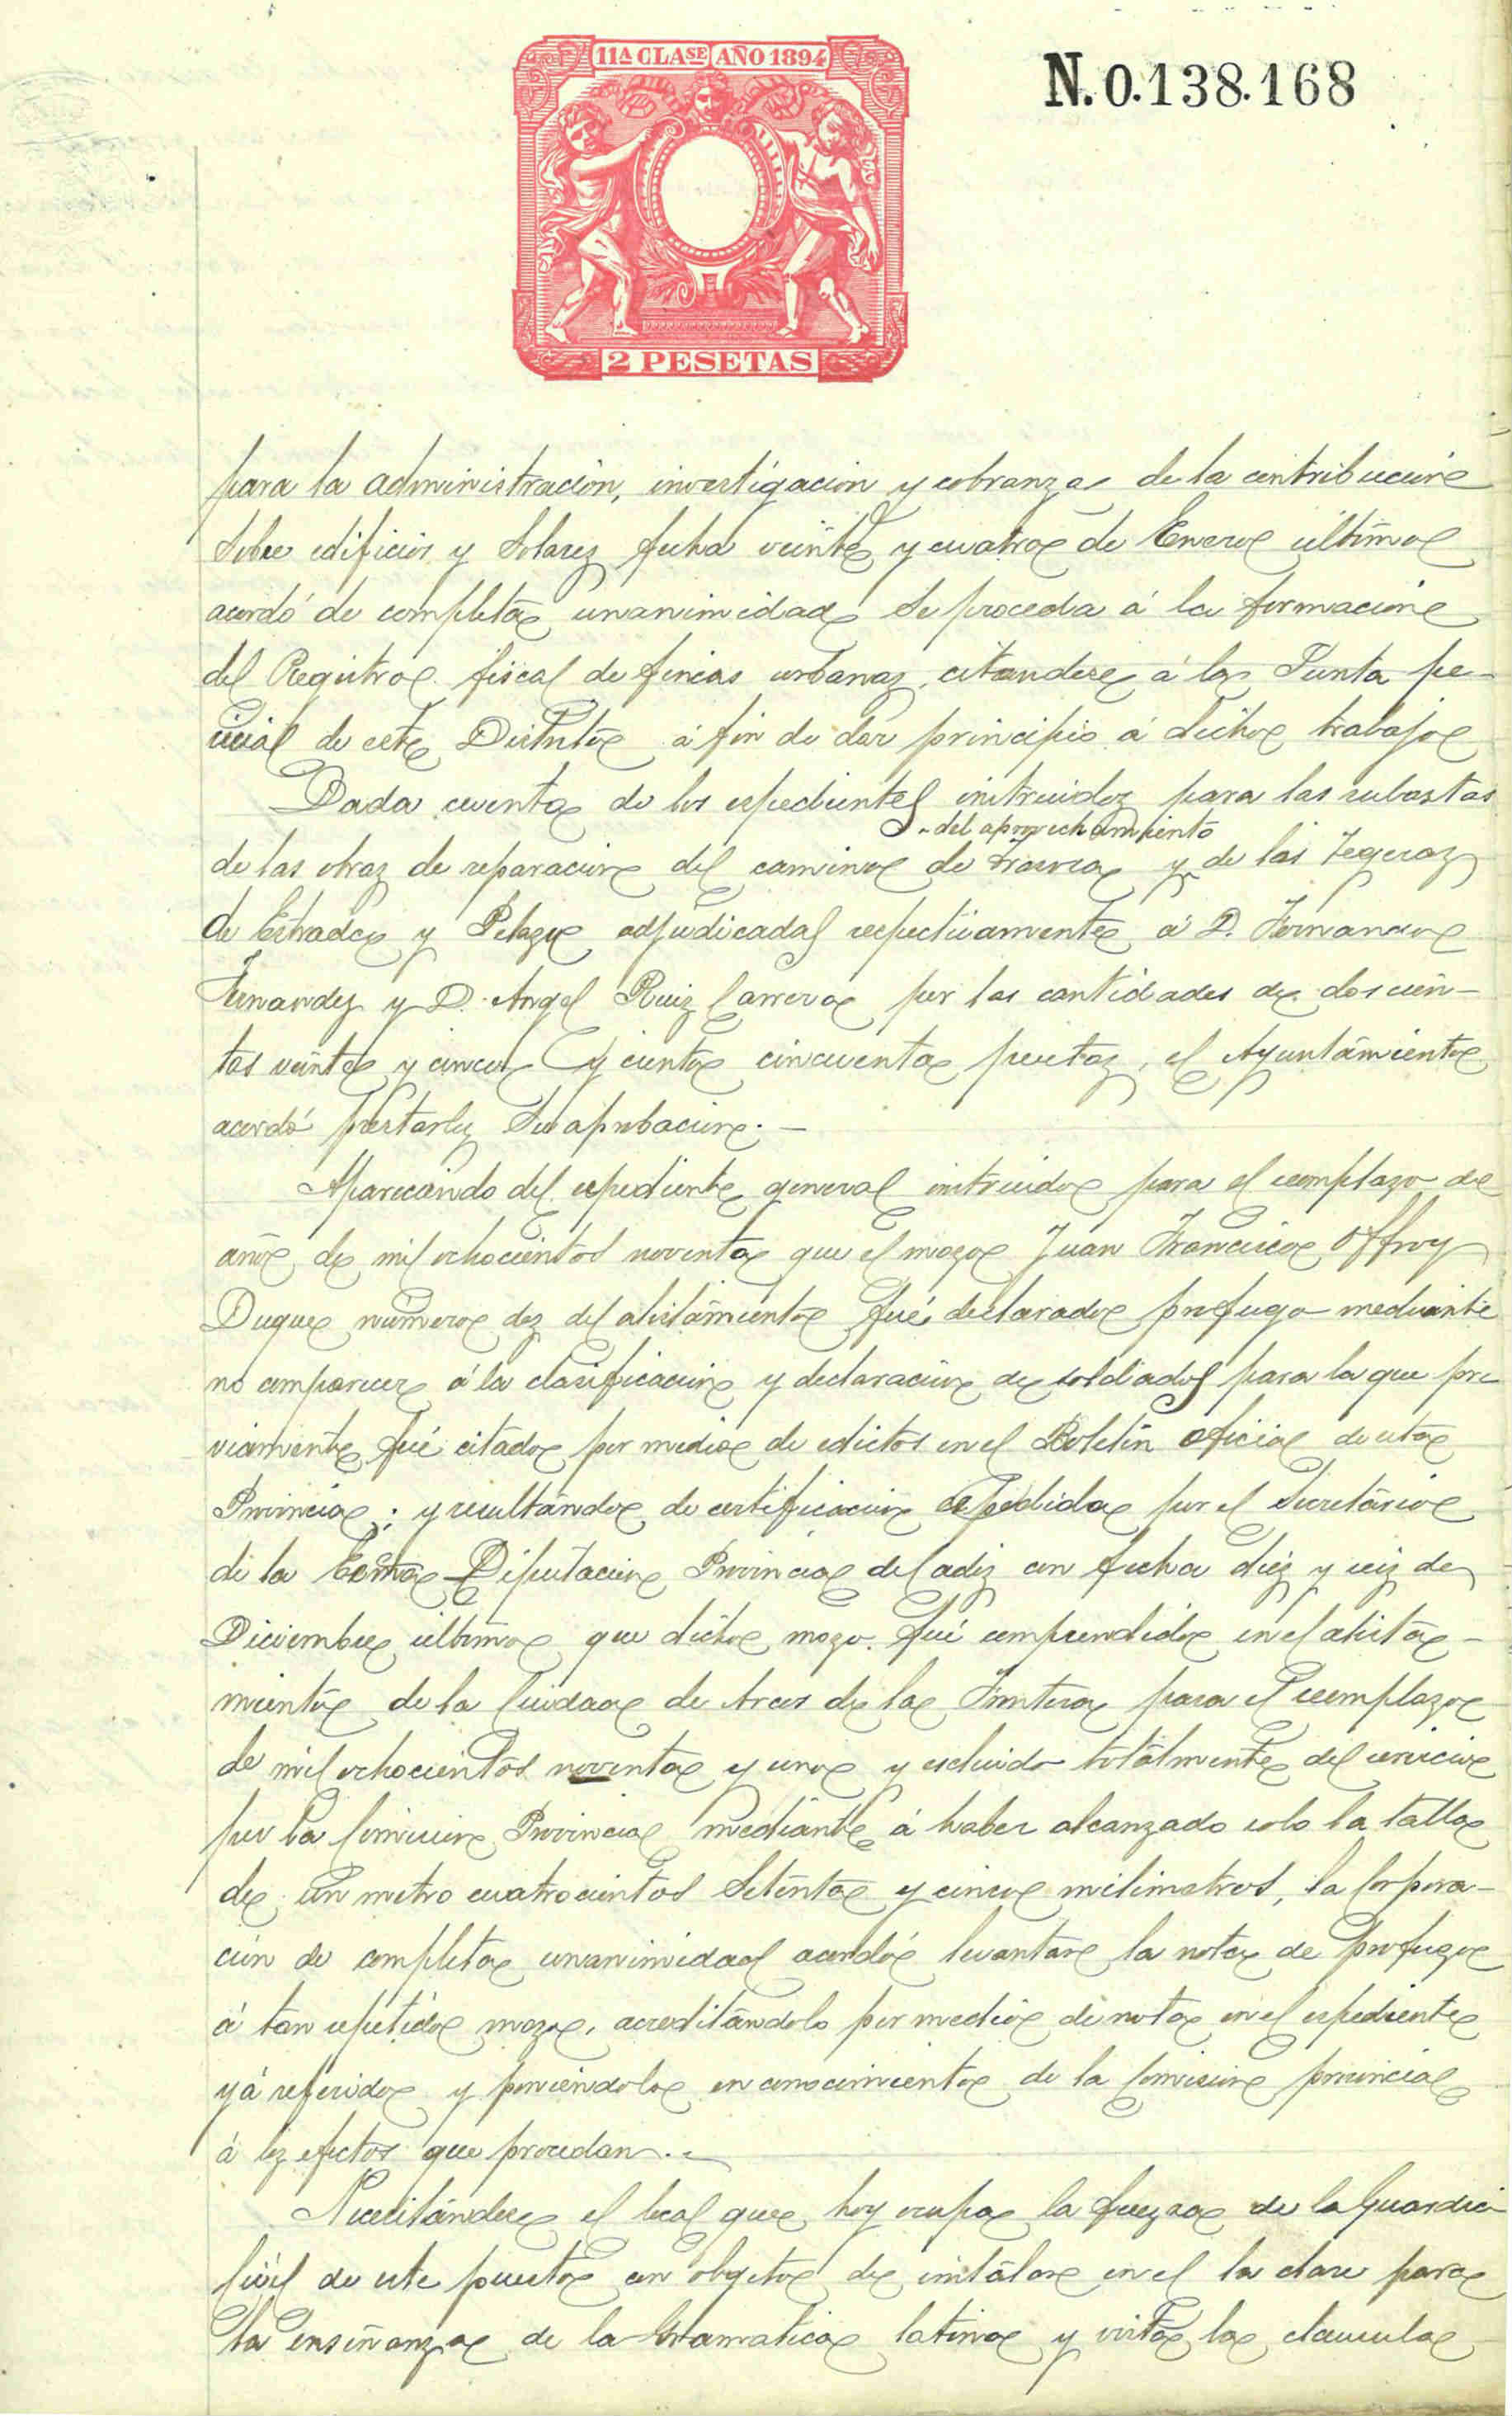 11ª CLASE AÑO 1894
N. 0.138.168
2 PESETAS
para la administración, investigacion y cobranza de la contribucion
sobre edificios y solares fecha veinte y cuatro de Enero último
acordó de completa unanimidad se proceda á la formacion
del Registro fiscal de fincas urbanas, citandose á la Junta pe-
ricial de este Distrito á fin de dar principio á dichos trabajos
Dada cuenta de los espedientes instruidos para las subastas
del aprovechamiento
de las obras de reparacion del camino de y de las Tegeras
de Estrada y adjudicadas respectivamente á D. Fernando
Fernandez y D. Angel Ruiz Carrero por las cantidades de doscien-
tas veinte y cinco y ciento cincuenta pesetas, el Ayuntamiento
acordó prestarles su aprobacion.-
Apareciendo del espediente general instruido para el reemplazo del
año de mil ochocientos noventa que el mozo Juan Francisco Offroy
Duque número diez del alistamiento fué declarado profugo mediante
no comparecer á la clasificacion y declaracion de soldados para la que pre
viamente fué citado por medio de edictos en el Boletin oficial de esta
Provincia; y resultando de certificacion espedida por el Secretario
de la Exma Diputacion Provincial de Cadiz con fecha diez y seis de
Diciembre último que dicho mozo fué comprendido en el alista-
miento de la Ciudad de Arcos de la Frontera para el reemplazo
de mil ochocientos noventa y uno y escluido totalmente del servicio
por la Comision Provincial mediante á haber alcanzado solo la talla
de un metro cuatrocientos setenta y cinco milimetros, la Corpora-
cion de completa unanimidad acordó levantar la nota de profugo
á tan repetido mozo, acreditandolo por medio de nota en el espediente
yá referido y poniendolo en conocimiento de la Comision provincial
á los efectos que procedan.-
Necesitandose el local que hoy ocupa la fuerza de la Guardia
Civil de este puesto con objeto de instalar en el la clase para
la enseñanza de la Gramatica latina y vista la clausula